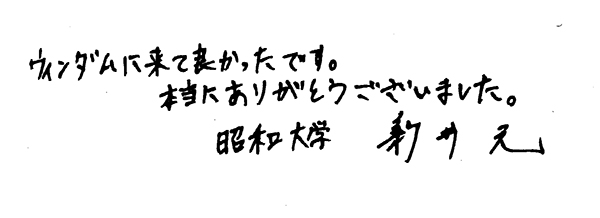 ウィンダムに来て良かったです。
本当にありがとうございました。
昭和大学 新井元